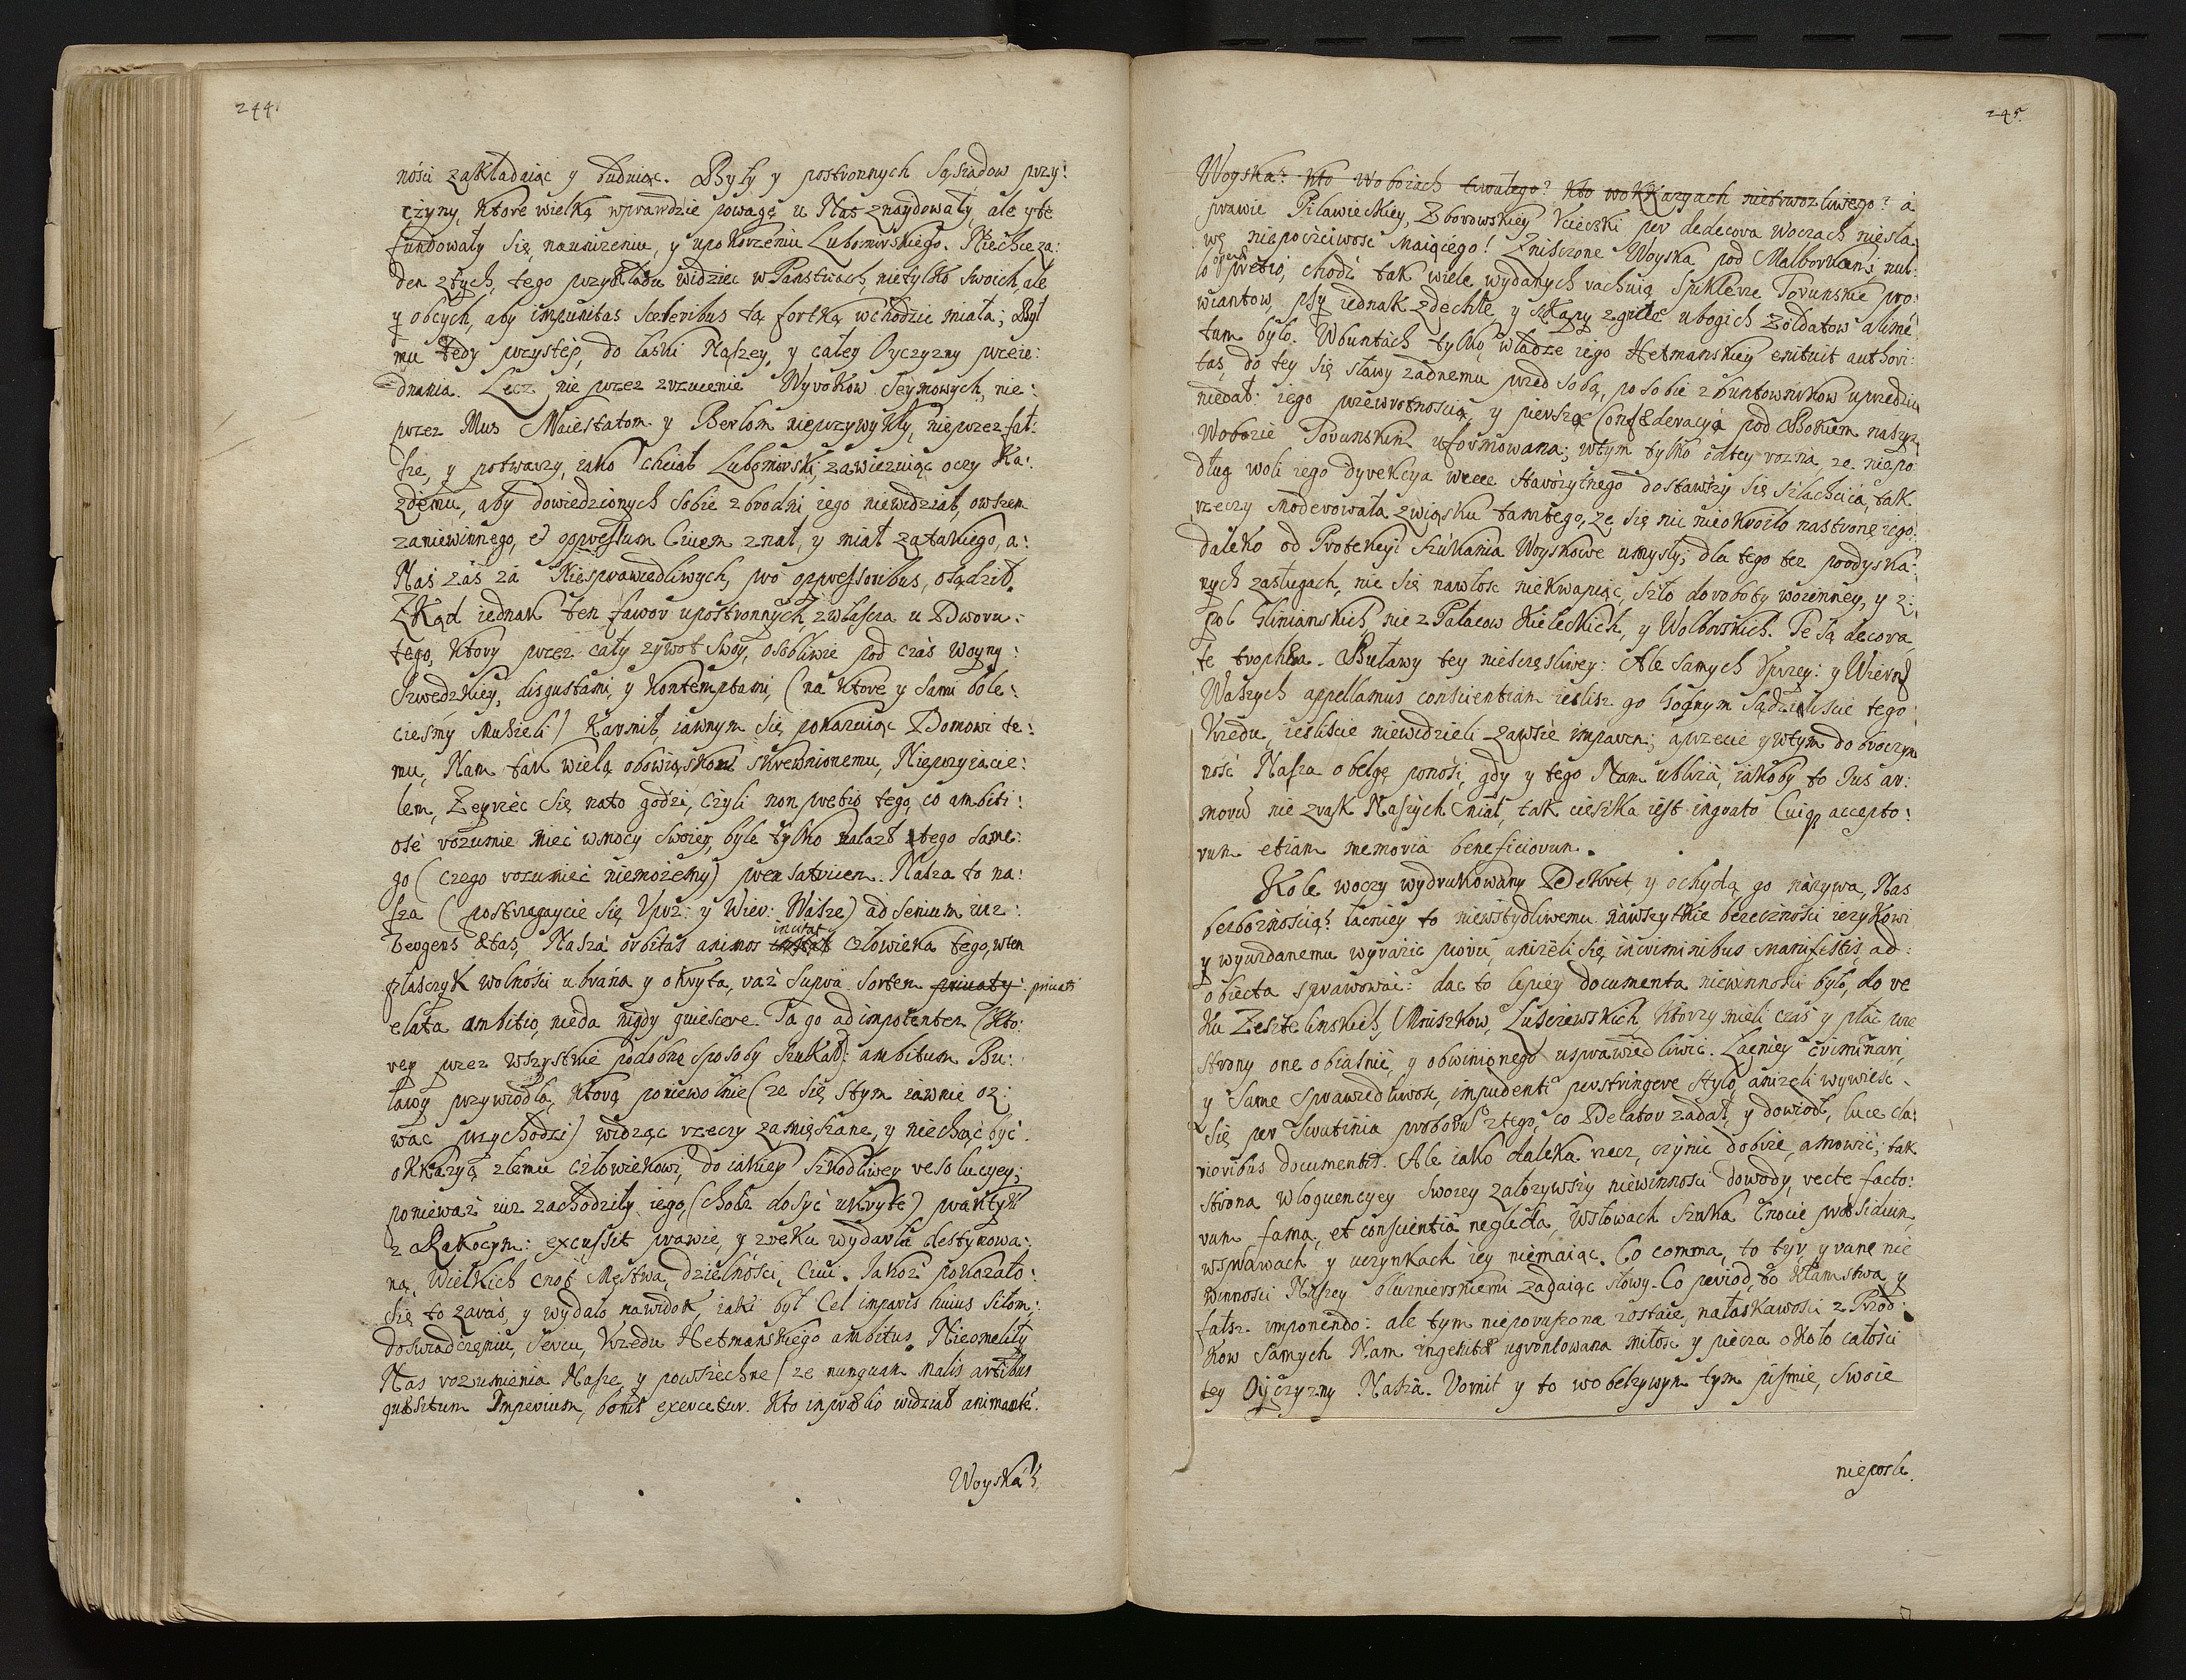 244.
ności zakładaiąc y łudniąc. Były y postronnych Sąsiadow przy:
czyny, ktore wielką wprawdzie powagę u Nas znaydowały, ale y te
fundowały się, na unizeniu, y upokorzeniu Lubomirskiego. Niechce za:
den z tych, tego przykładu widziec w Panstwach, nietylko swoich, ale
y obcych, aby impunitas sceleribus tą fortką wchodzic miała; Był
mu tedy przystęp, do łaski Naszey, y całey Oyczyzny przeie:
dnania. Lecz nie przez zrzucenie Wyrokow Seymowych, nie:
przez Mus Maiestatom y Berłom nieprzywykły, nie przez fał:
sze, y potwarzy, iako chciał Lubomirski, zawiezuiąc oczy Ka:
zdemu, aby dowiedzionych sobie zbrodni iego niewidział, owszem
za niewinnego, et oppressum Civem znał, y miał za takiego, a:
Nas zas za Niesprawiedliwych, pro oppressoribus, osądził.
Zkąd iednak ten fawor u postronnych, zwłaszcza u Dworu:
tego, ktory przez cały zywot swoy, osobliwie pod czas Woyny:
Szwedzkiey, disgustami, y kontemptami, (na ktore y sami bole:
ciesmy Musieli) Karmił, iawnym się pokazuiąc Domowi te:
mu, Nam tak wielą obowiąskow skrewnionemu, Nieprzyiacie:
lem, Zeyrzec się na to godzi, czyli non pretio tego, co ambiti:
ose rozumie miec w mocy swoiey, byle tylko nalazł tego same:
go (czego rozumiec niemozemy) pensatricem. Nasza to na:
sza (postrzegaycie się Uprz: y Wier: Wasze) ad senium iuz:
vergens ætas, Nasza orbitas animos incitat człowieka tego, w ten
płaszczyk wolności ubrana y okryta, raz supra sortem privaty: privati
elata ambitio, nieda nigdy quiescere. Ta go ad impotentem (kto:
rey przez wszystkie podobne sposoby szukał) ambitum Bu:
ławy przywiodła, ktorą poniewolnie (ze się s tym iawnie oz:
wac przychodzi) widząc rzeczy zamięszane, y niechąc być
okkazyą złemu człowiekowi, do iakiey szkodliwey resolucyey;
poniewaz iuz zachodziły iego, (choc dosyć ukryte) praktyki
z Rakocym: excussit prawie, y z ręku wydarła destynowa:
ną, Wielkich cnot Męstwa, dzielności, Civi. Jakoz pokazało:
się to zaraz, y wydało na widok, iaki był Cel imparis huius siłom,
doswiadczeniu, sercu, Urzedu Hetmańskiego ambitus. Nieomeliły
Nas rozumienia Nasze, y powszechne / ze nunquam malis artibus
quæsitum Imperium, bonis exercetur. Kto in prælio widział animanté
Woyska?
245.
Woyska? Kto w obozach trwałego? Kto w okkazyach nietrwozliwego? a
prawie Piławieckiey, Zborowskiey Ucieczki per dedecora w oczach niesła:
wę niepoczciwosc maiącego! Zniszczone Woyska pod Malborkiem; nul:
lo operæ pretio, choć tak wiele wydanych rachuią Spiklerze Torunskie pro:
wiantow, psy iednak zdechłe, y szkapy zgniłe ubogich zołdatow alimé
tum było. W buntach tylko, władze iego Hetmanskiey enituit authori:
tas, do tey się sławy zadnemu przed sobą, po sobie z buntownikow uprzedzić
niedał: iego przewrotnością, y pierszą Confæderacyą pod Bokiem naszym
W obozie Torunskim uformowana; w tym tylko od tey rozna, ze niepo
dług woli iego dyrekcya w ręce starozytnego dostawszy się szlachcica, tak
rzeczy moderowała związku tamtego, ze się nic nieokroiło na stronę iego:
daleko od Protekcyi szukania Woyskowe umysły; dla tego tez po odyska:
nych zasługach, nie się na włosc niekwapiąc, szło do roboty woienney, y z:
pol Glinianskich, nie z Pałacow Kieleckich, y Wolborskich. Te są decora,
te trophæa. Buławy tey niesczesliwey: Ale samych Uprzey: y Wiern
Waszych appellamus conscientiam ieslisz go godnym sądziliście tego
Urzedu, iesliscie niewidzieli zawsze imparem; a przecie y w tym dobroczyn
ność Nasza obelgę ponosi, gdy y tego Nam ubliza, iakoby to Jus ar:
morum nie z rąk Naszych miał, tak cieszka iest ingrato Cuiq; accepto:
rum etiam memoria beneficiorum.
Kole w oczy wydrukowany Dekret, y ochydą go nazywa, Nas
bezboznością? łacniey to niewstydliwemu na wszytkie bezecznosci iezykowi
y wyuzdanemu wyrazic piorú, anizeli się in criminibus manifestis, ad:
obiecta sprawowac: dac to lepiey documenta niewinności było, do rę
ku Zesztelinskich, Mruszkow, Luszczewskich, ktorzy mieli czas y plac ice
strony one obiasnic, y obwinionego usprawiedliwic. Łacniey criminari,
y same sprawiedliwosc, impudenti perstringere stylo, anizeli wywiesc
się per Scrutinia proborum z tego, co Delator zadał, y dowiodł, luce cla:
rioribus documentis. Ale iako daleka rzecz, czynic dobrze, a mowic; tak
strona w loquencyey swoiey załozywszy niewinności dowody, recte facto:
rum fama, et conscientia neglecta, w słowach szuka cnocie præsidium,
w sprawach y uczynkach iey niemaiąc. Co comma, to tyr y ranę nie
winności Naszey bluznierskiemi zadaiąc słowy. Co period, to kłamstwa, y
fałsz imponendo: ale tym nieporuszona zostaie, na łaskawości z Przod:
kow samych Nam ingenita ugrontowana miłosc y piecza około całości
tey Oyczyzny Nasza. Vomit y to w obelzywym tym pismie, swoie
nieposk.